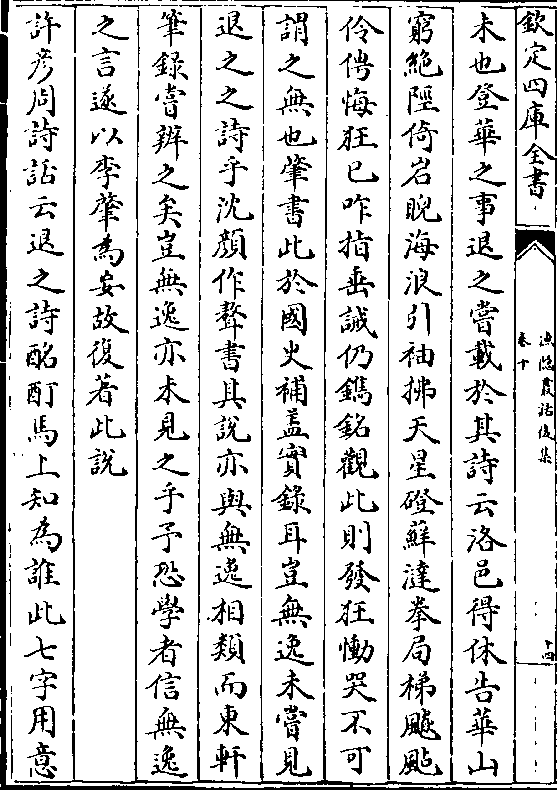 欽定四庫全書
漁隠叢話後集
卷十
十四
未也登華之事退之嘗載於其詩云洛邑得休告華山
窮絶陘倚岩睨海浪引袖拂天星磴蘚澾拳局梯飈颭
伶俜悔狂已咋指垂誡仍鐫銘觀此則發狂慟哭不可
謂之無也肇書此於國史補蓋實錄耳豈無逸未嘗見
退之之詩乎沈顔作聱書其說亦與無逸相類而東軒
筆錄嘗辨之矣豈無逸亦未見之乎予恐學者信無逸
之言遂以李肇為妄故復著此說
許彦周詩話云退之詩酩酊馬上知為誰此七字用意